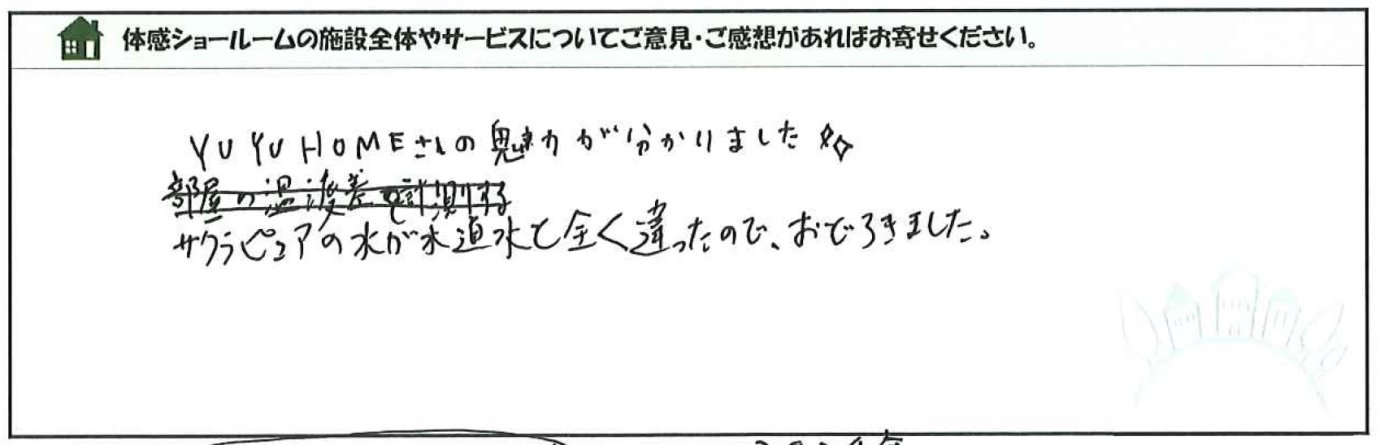 体感ショールームの施設全体やサービスについてご意見・ご感想があればお寄せください。
YUYUHOMEさんの魅力が分かりました
部屋の温度差を計測する
サクラピュアの水が水道水と全く違ったので、おどろきました。